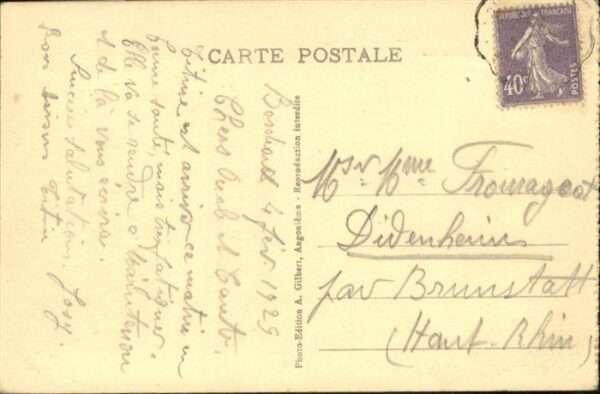 CARTE POSTALE
RÉPUBLIQUE FRANÇAISE
40c
POSTES
4 fév. 1929
Chers Oncle et Tante,
Titine est arrivée ce matin en
bonne santé, mais très fatiguée.
Elle va se rendre à
et de là vous écrira.
Sincères salutations. Josy.
Bons baisers Titine
Photo-Edition A. Gilbert, Angoulême - Reproduction interdite
Mr & Mme Fromageot
Didenheim
par Brunstatt
(Haut-Rhin)